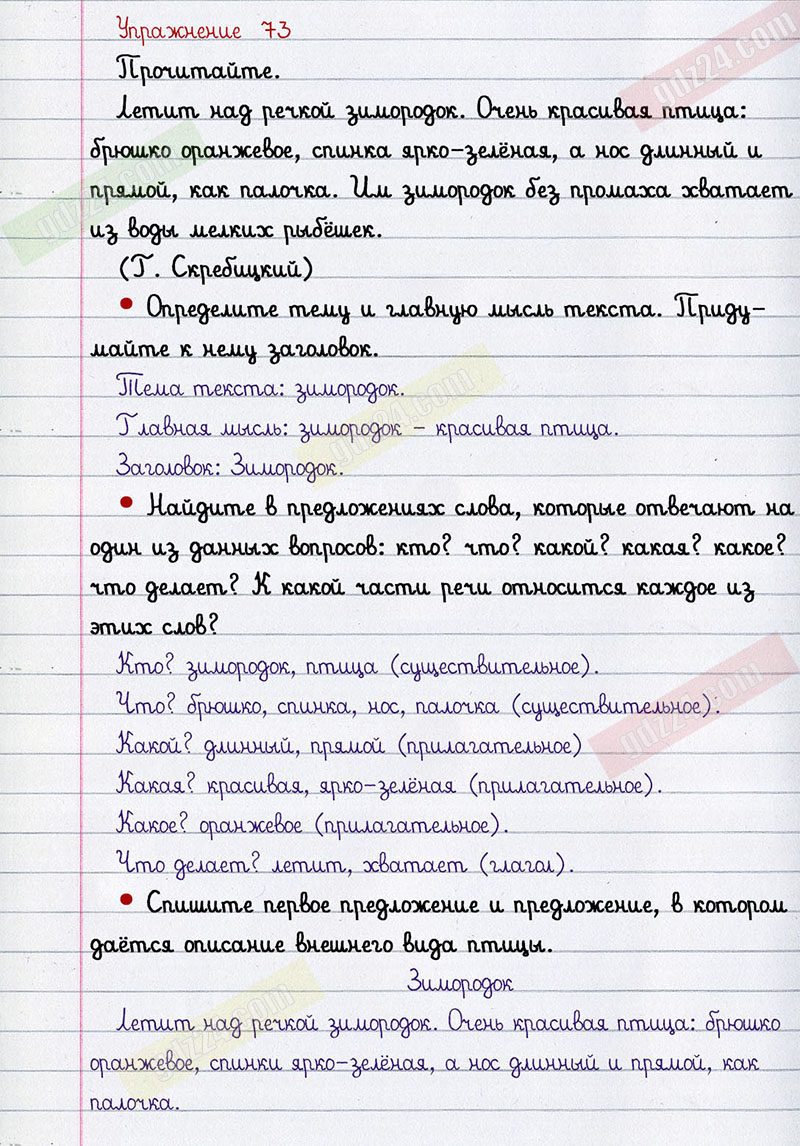 Упражнение 73
Прочитайте.
Летит над речкой зимородок. Очень красивая птица:
брюшко оранжевое, спинка ярко-зелёная, а нос длинный и
прямой, как палочка. Им зимородок без промаха хватает
из воды мелких рыбёшек.
(Г. Скребицкий)
• Определите тему и главную мысль текста. Приду-
майте к нему заголовок.
Тема текста: зимородок.
Главная мысль: зимородок – красивая птица.
Заголовок: Зимородок.
• Найдите в предложениях слова, которые отвечают на
один из данных вопросов: кто? что? какой? какая? какое?
что делает? К какой части речи относится каждое из
этих слов?
Кто? зимородок, птица (существительное).
Что? брюшко, спинка, нос, палочка (существительное).
Какой? длинный, прямой (прилагательное)
Какая? красивая, ярко-зелёная (прилагательное).
Какое? оранжевое (прилагательное).
Что делает? летит, хватает (глагол).
• Спишите первое предложение и предложение, в котором
даётся описание внешнего вида птицы.
Зимородок
Летит над речкой зимородок. Очень красивая птица: брюшко
оранжевое, спинки ярко-зелёная, а нос длинный и прямой, как
палочка.
gdz24.com
gdz24.com
gdz24.com
gdz24.com
gdz24.com